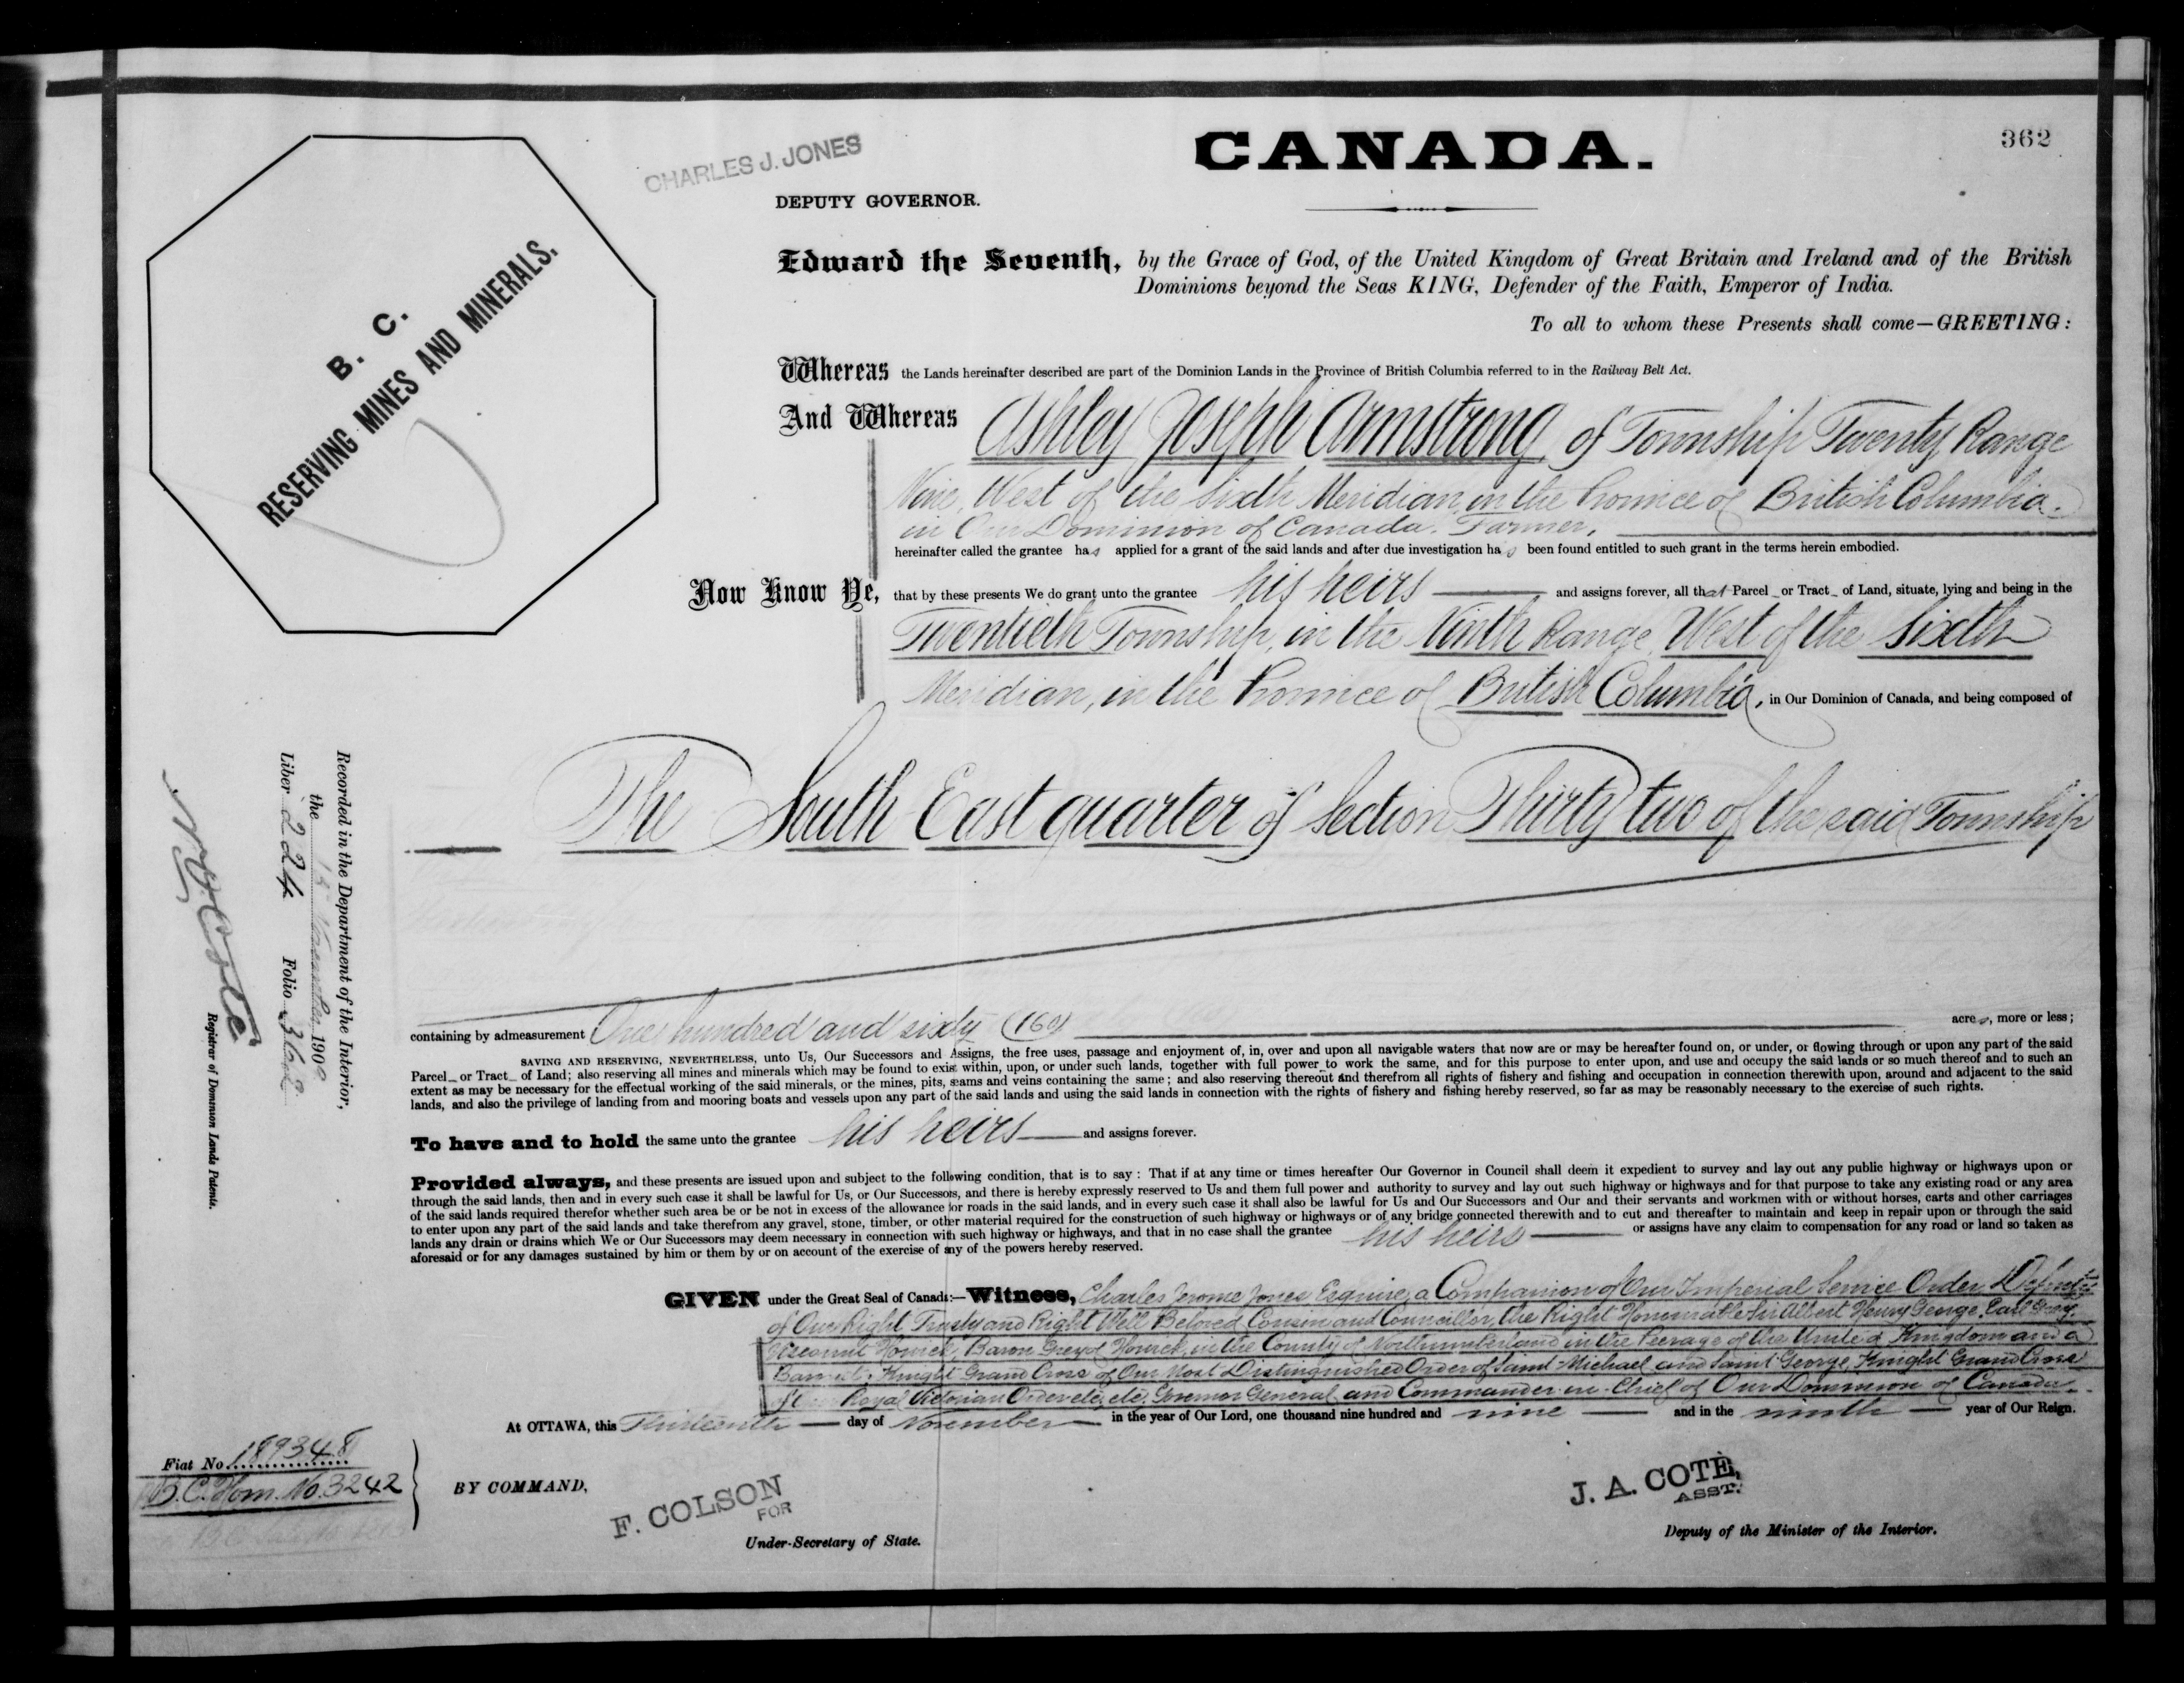 362
CHARLES J. JONES
CANADA.
DEPUTY GOVERNOR.
B. C.
RESERVING MINES AND MINERALS.
Edward the Seventh, by the Grace of God, of the United Kingdom of Great Britain and Ireland and of the British
Dominions beyond the Seas KING, Defender of the Faith, Emperor of India.
To all to whom these Presents shall come—GREETING:
Whereas the Lands hereinafter described are part of the Dominion Lands in the Province of British Columbia referred to in the Railway Belt Act.
And Whereas Ashley Joseph Armstrong, of Township Twenty Range
Nine, West of the Sixth Meridian, in the Province of British Columbia.
in Our Dominion of Canada. Farmer,
hereinafter called the grantee has applied for a grant of the said lands and after due investigation has been found entitled to such grant in the terms herein embodied.
Now Know Ye, that by these presents We do grant unto the grantee his heirs and assigns forever, all that Parcel or Tract of Land, situate, lying and being in the
Twentieth Township, in the Ninth Range, West of the Sixth
Meridian, in the Province of British Columbia, in Our Dominion of Canada, and being composed of
The South East quarter of Section Thirty two of the said Township
containing by admeasurement One hundred and sixty (160) acres, more or less;
SAVING AND RESERVING, NEVERTHELESS, unto Us, Our Successors and Assigns, the free uses, passage and enjoyment of, in, over and upon all navigable waters that now are or may be hereafter found on, or under, or flowing through or upon any part of the said
Parcel or Tract of Land; also reserving all mines and minerals which may be found to exist within, upon, or under such lands, together with full power to work the same, and for this purpose to enter upon, and use and occupy the said lands or so much thereof and to such an
extent as may be necessary for the effectual working of the said minerals, or the mines, pits, seams and veins containing the same; and also reserving thereout and therefrom all rights of fishery and fishing and occupation in connection therewith upon, around and adjacent to the said
lands, and also the privilege of landing from and mooring boats and vessels upon any part of the said lands and using the said lands in connection with the rights of fishery and fishing hereby reserved, so far as may be reasonably necessary to the exercise of such rights.
To have and to hold the same unto the grantee his heirs and assigns forever.
Provided always, and these presents are issued upon and subject to the following condition, that is to say: That if at any time or times hereafter Our Governor in Council shall deem it expedient to survey and lay out any public highway or highways upon or
through the said lands, then and in every such case it shall be lawful for Us, or Our Successors, and there is hereby expressly reserved to Us and them full power and authority to survey and lay out such highway or highways and for that purpose to take any existing road or any area
of the said lands required therefor whether such area be or be not in excess of the allowance for roads in the said lands, and in every such case it shall also be lawful for Us and Our Successors and Our and their servants and workmen with or without horses, carts and other carriages
to enter upon any part of the said lands and take therefrom any gravel, stone, timber, or other material required for the construction of such highway or highways or of any bridge connected therewith and to cut and thereafter to maintain and keep in repair upon or through the said
lands any drain or drains which We or Our Successors may deem necessary in connection with such highway or highways, and that in no case shall the grantee his heirs or assigns have any claim to compensation for any road or land so taken as
aforesaid or for any damages sustained by him or them by or on account of the exercise of any of the powers hereby reserved.
GIVEN under the Great Seal of Canada:—Witness, Charles Jerome Jones Esquire, a Companion of Our Imperial Service Order, Deputy
of Our Right Trusty and Right Well Beloved Cousin and Councillor, the Right Honourable Sir Albert Henry George, Earl Grey,
Viscount Howick, Baron Grey of Howick, in the County of Northumberland in the Peerage of the United Kingdom and a
Baronet; Knight Grand Cross of Our Most Distinguished Order of Saint Michael and Saint George, Knight Grand Cross
Royal Victorian Order etc, etc, Governor General and Commander-in-Chief of Our Dominion of Canada.
At OTTAWA, this Thirteenth day of November in the year of Our Lord, one thousand nine hundred and nine and in the ninth year of Our Reign.
Fiat No. 189348
B.C. Hom. No. 3242
BY COMMAND,
F. COLSON
FOR
Under-Secretary of State.
J. A. COTÉ,
ASST.
Deputy of the Minister of the Interior.
Recorded in the Department of the Interior,
the November 1909
Liber 224 Folio 362
Registrar of Dominion Lands Patents.